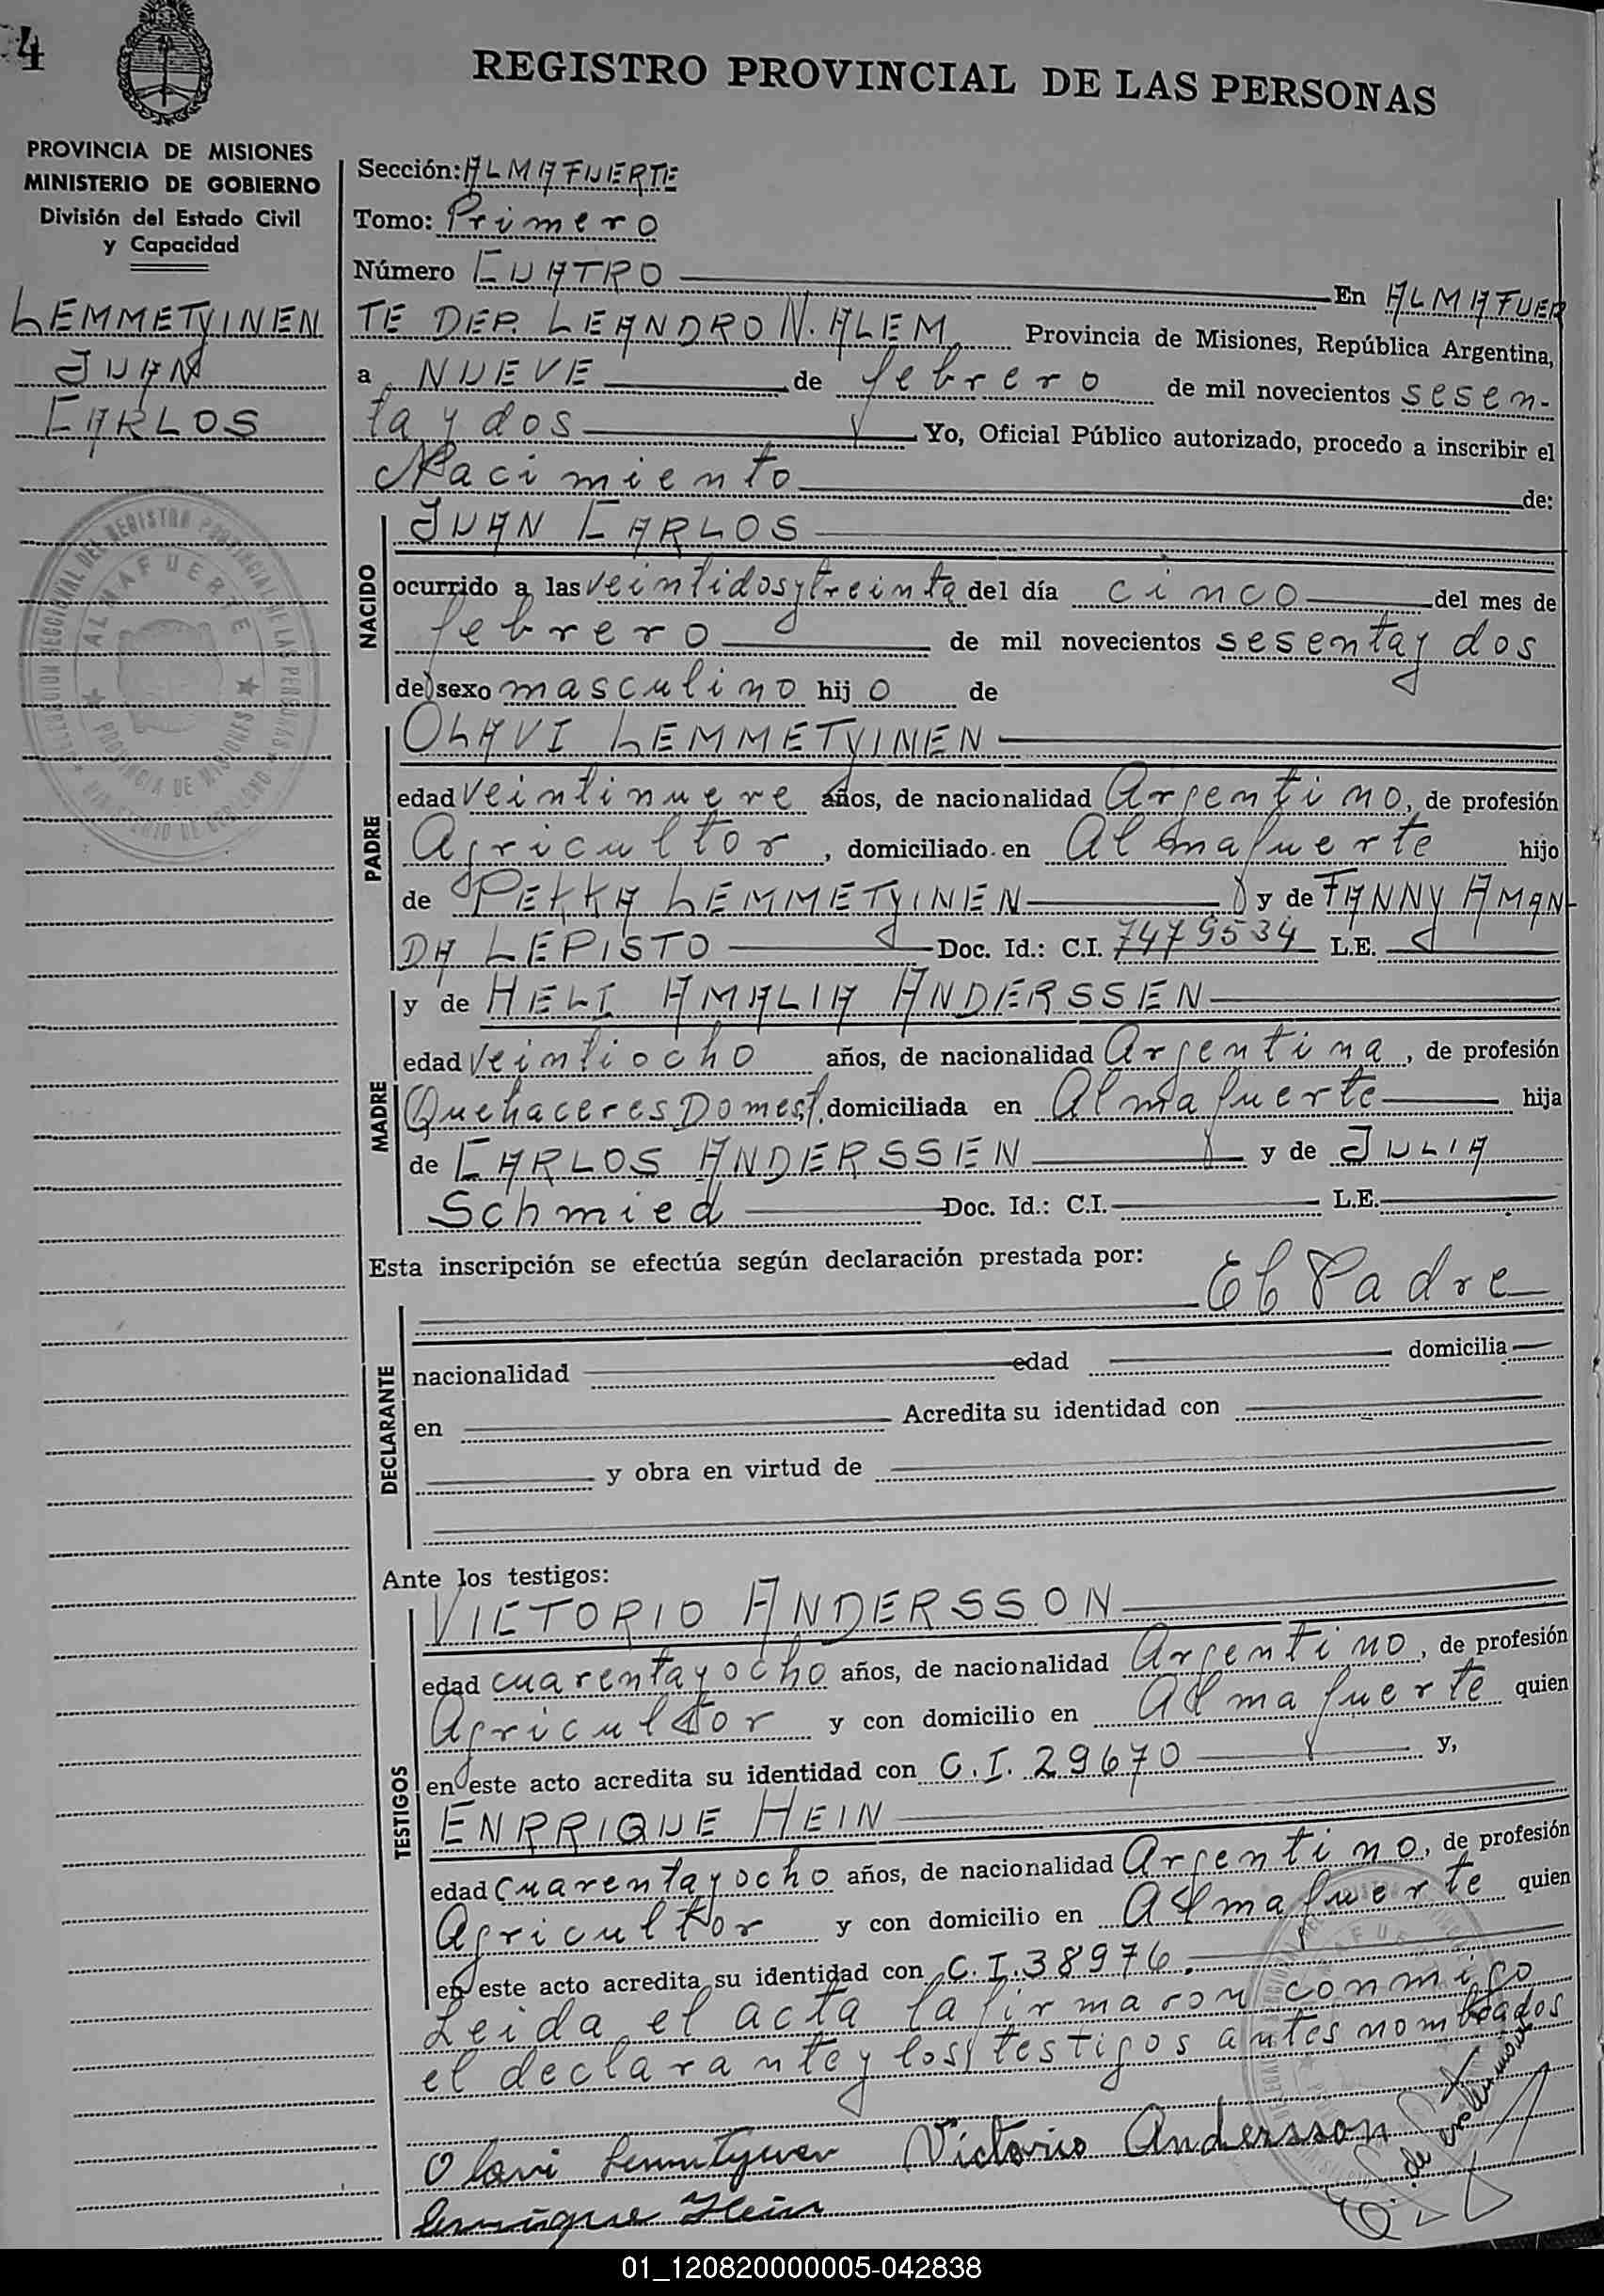 4
REGISTRO PROVINCIAL DE LAS PERSONAS
PROVINCIA DE MISIONES
MINISTERIO DE GOBIERNO
División del Estado Civil
y Capacidad
LEMMETYINEN
JUAN
CARLOS
Sección: ALMAFUERTE
Tomo: Primero
Número CUATRO En ALMAFUER
TE DEP. LEANDRO N. ALEM Provincia de Misiones, República Argentina,
a NUEVE de febrero de mil novecientos sesen-
ta y dos Yo, Oficial Público autorizado, procedo a inscribir el
Nacimiento de:
NACIDO
JUAN CARLOS
ocurrido a las veintidos y treinta del día cinco del mes de
febrero de mil novecientos sesenta y dos
de sexo masculino hijo de
PADRE
OLAVI LEMMETYINEN
edad veintinueve años, de nacionalidad Argentino, de profesión
Agricultor, domiciliado en Almafuerte hijo
de PEKKA LEMMETYINEN y de FANNY AMAN-
DA LEPISTO Doc. Id.: C.I. 7479534 L.E.
MADRE
y de HELI AMALIA ANDERSSEN
edad veintiocho años, de nacionalidad Argentina, de profesión
Quehaceres Domest. domiciliada en Almafuerte hija
de CARLOS ANDERSSEN y de JULIA
Schmied Doc. Id.: C.I. L.E.
Esta inscripción se efectúa según declaración prestada por:
El Padre
DECLARANTE
nacionalidad edad domicilia
en Acredita su identidad con
y obra en virtud de
Ante los testigos:
TESTIGOS
VICTORIO ANDERSSON
edad cuarenta y ocho años, de nacionalidad Argentino, de profesión
Agricultor y con domicilio en Almafuerte quien
en este acto acredita su identidad con C.I. 29670 y,
ENRRIQUE HEIN
edad cuarenta y ocho años, de nacionalidad Argentino, de profesión
Agricultor y con domicilio en Almafuerte quien
en este acto acredita su identidad con C.I. 38976.
Leida el acta la firmaron conmigo
el declarante y los testigos antes nombrados
Olavi Lemmetyinen Victorio Andersson
Enrrique Hein
01_120820000005-042838